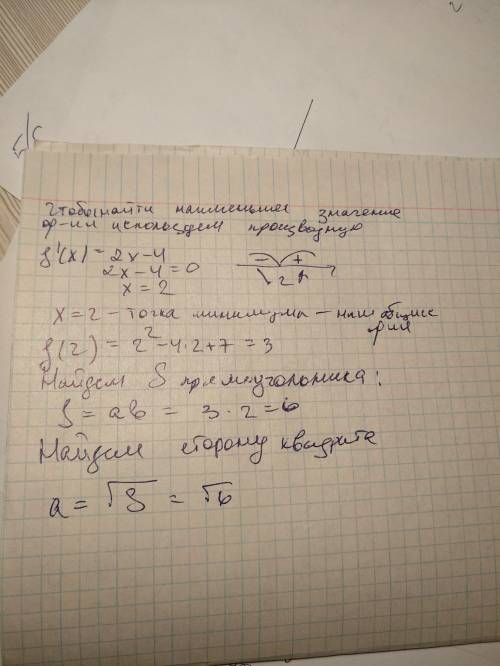 Чтобы найти наименьшее значение
ф-ии используем производную
f'(x) = 2x-4
2x-4=0
x = 2
- +
2
x = 2 - точка минимума - наш
f(2) = 2² - 4·2+7 = 3
Найдем S прямоугольника:
S = ab = 3·2=6
Найдем сторону квадрата
a = √S = √6